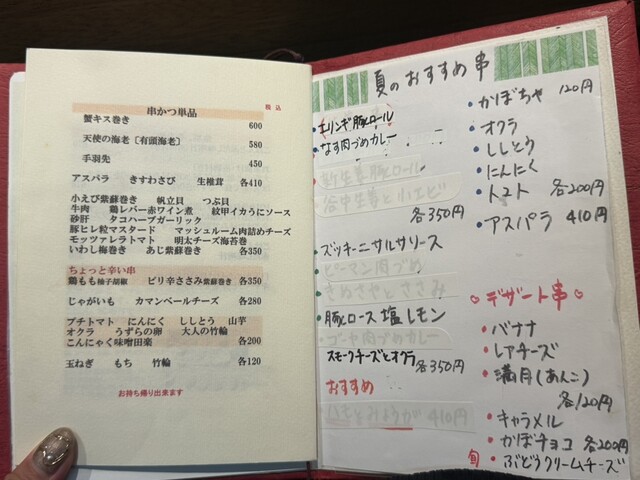 串かつ単品 税込
蟹キス巻き
600
天使の海老〔有頭海老〕
580
手羽先
450
アスパラ きすわさび 生椎茸 各410
小えび紫蘇巻き 帆立貝 つぶ貝
牛肉 鶏レバー赤ワイン煮 紋甲イカうにソース
砂肝 タコハーブガーリック
豚ヒレ粒マスタード マッシュルーム肉詰めチーズ
モッツァレラトマト 明太チーズ海苔巻
いわし梅巻き あじ紫蘇巻き 各350
ちょっと辛い串
鶏もも柚子胡椒 ピリ辛ささみ紫蘇巻き 各350
じゃがいも カマンベールチーズ 各280
プチトマト にんにく ししとう 山芋
オクラ うずらの卵 大人の竹輪
こんにゃく味噌田楽 各200
玉ねぎ もち 竹輪 各120
お持ち帰り出来ます
夏のおすすめ串
エリンギ豚ロール
なす肉づめカレー
新生姜豚ロール
谷中生姜と小エビ
各350円
ズッキーニサルサソース
ピーマン肉づめ
きぬさやとささみ
豚ロース塩レモン
ゴーヤ肉づめカレー
スモークチーズとオクラ 各350円
おすすめ
はもとみょうが 410円
・かぼちゃ 120円
・オクラ
・ししとう
・にんにく
・トマト 各200円
・アスパラ 410円
♡デザート串♡
・バナナ
・レアチーズ
・満月(あんこ)
各120円
・キャラメル
・かぼチョコ 各200円
旬・ぶどうクリームチーズ